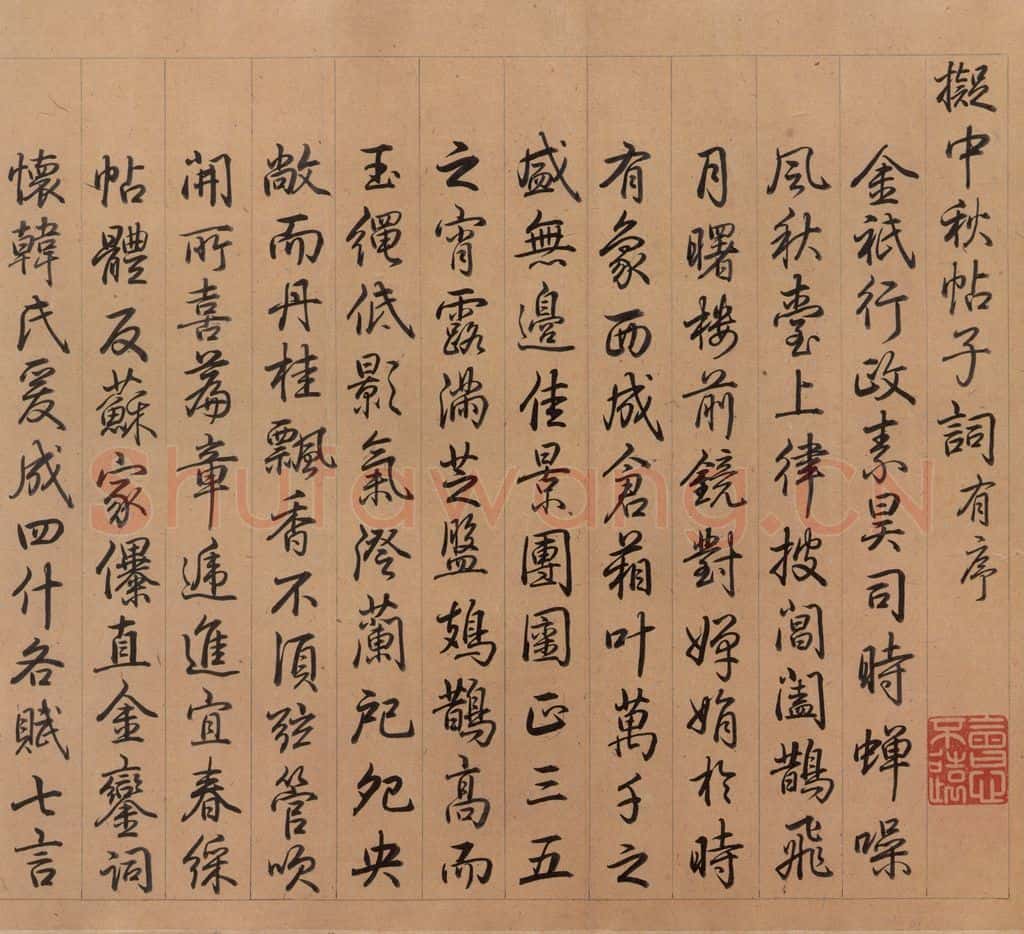 擬中秋帖子詞有序
金祇行政素昊司時蟬噪
風秋臺上律披閶闔鵲飛
月曙樓前鏡對嬋娟於時
有象西成倉箱叶萬千之
盛無邊佳景團圞正三五
之宵露滿芝盤鳷鵲高而
玉繩低影氣澄蘭戺夗央
敞而丹桂飄香不須弦管吹
開所喜篇章遞進宜春綵
帖體反蘇家儤直金鑾詞
懷韓氏爰成四什各賦七言
會心不遠
Shufawang.CN